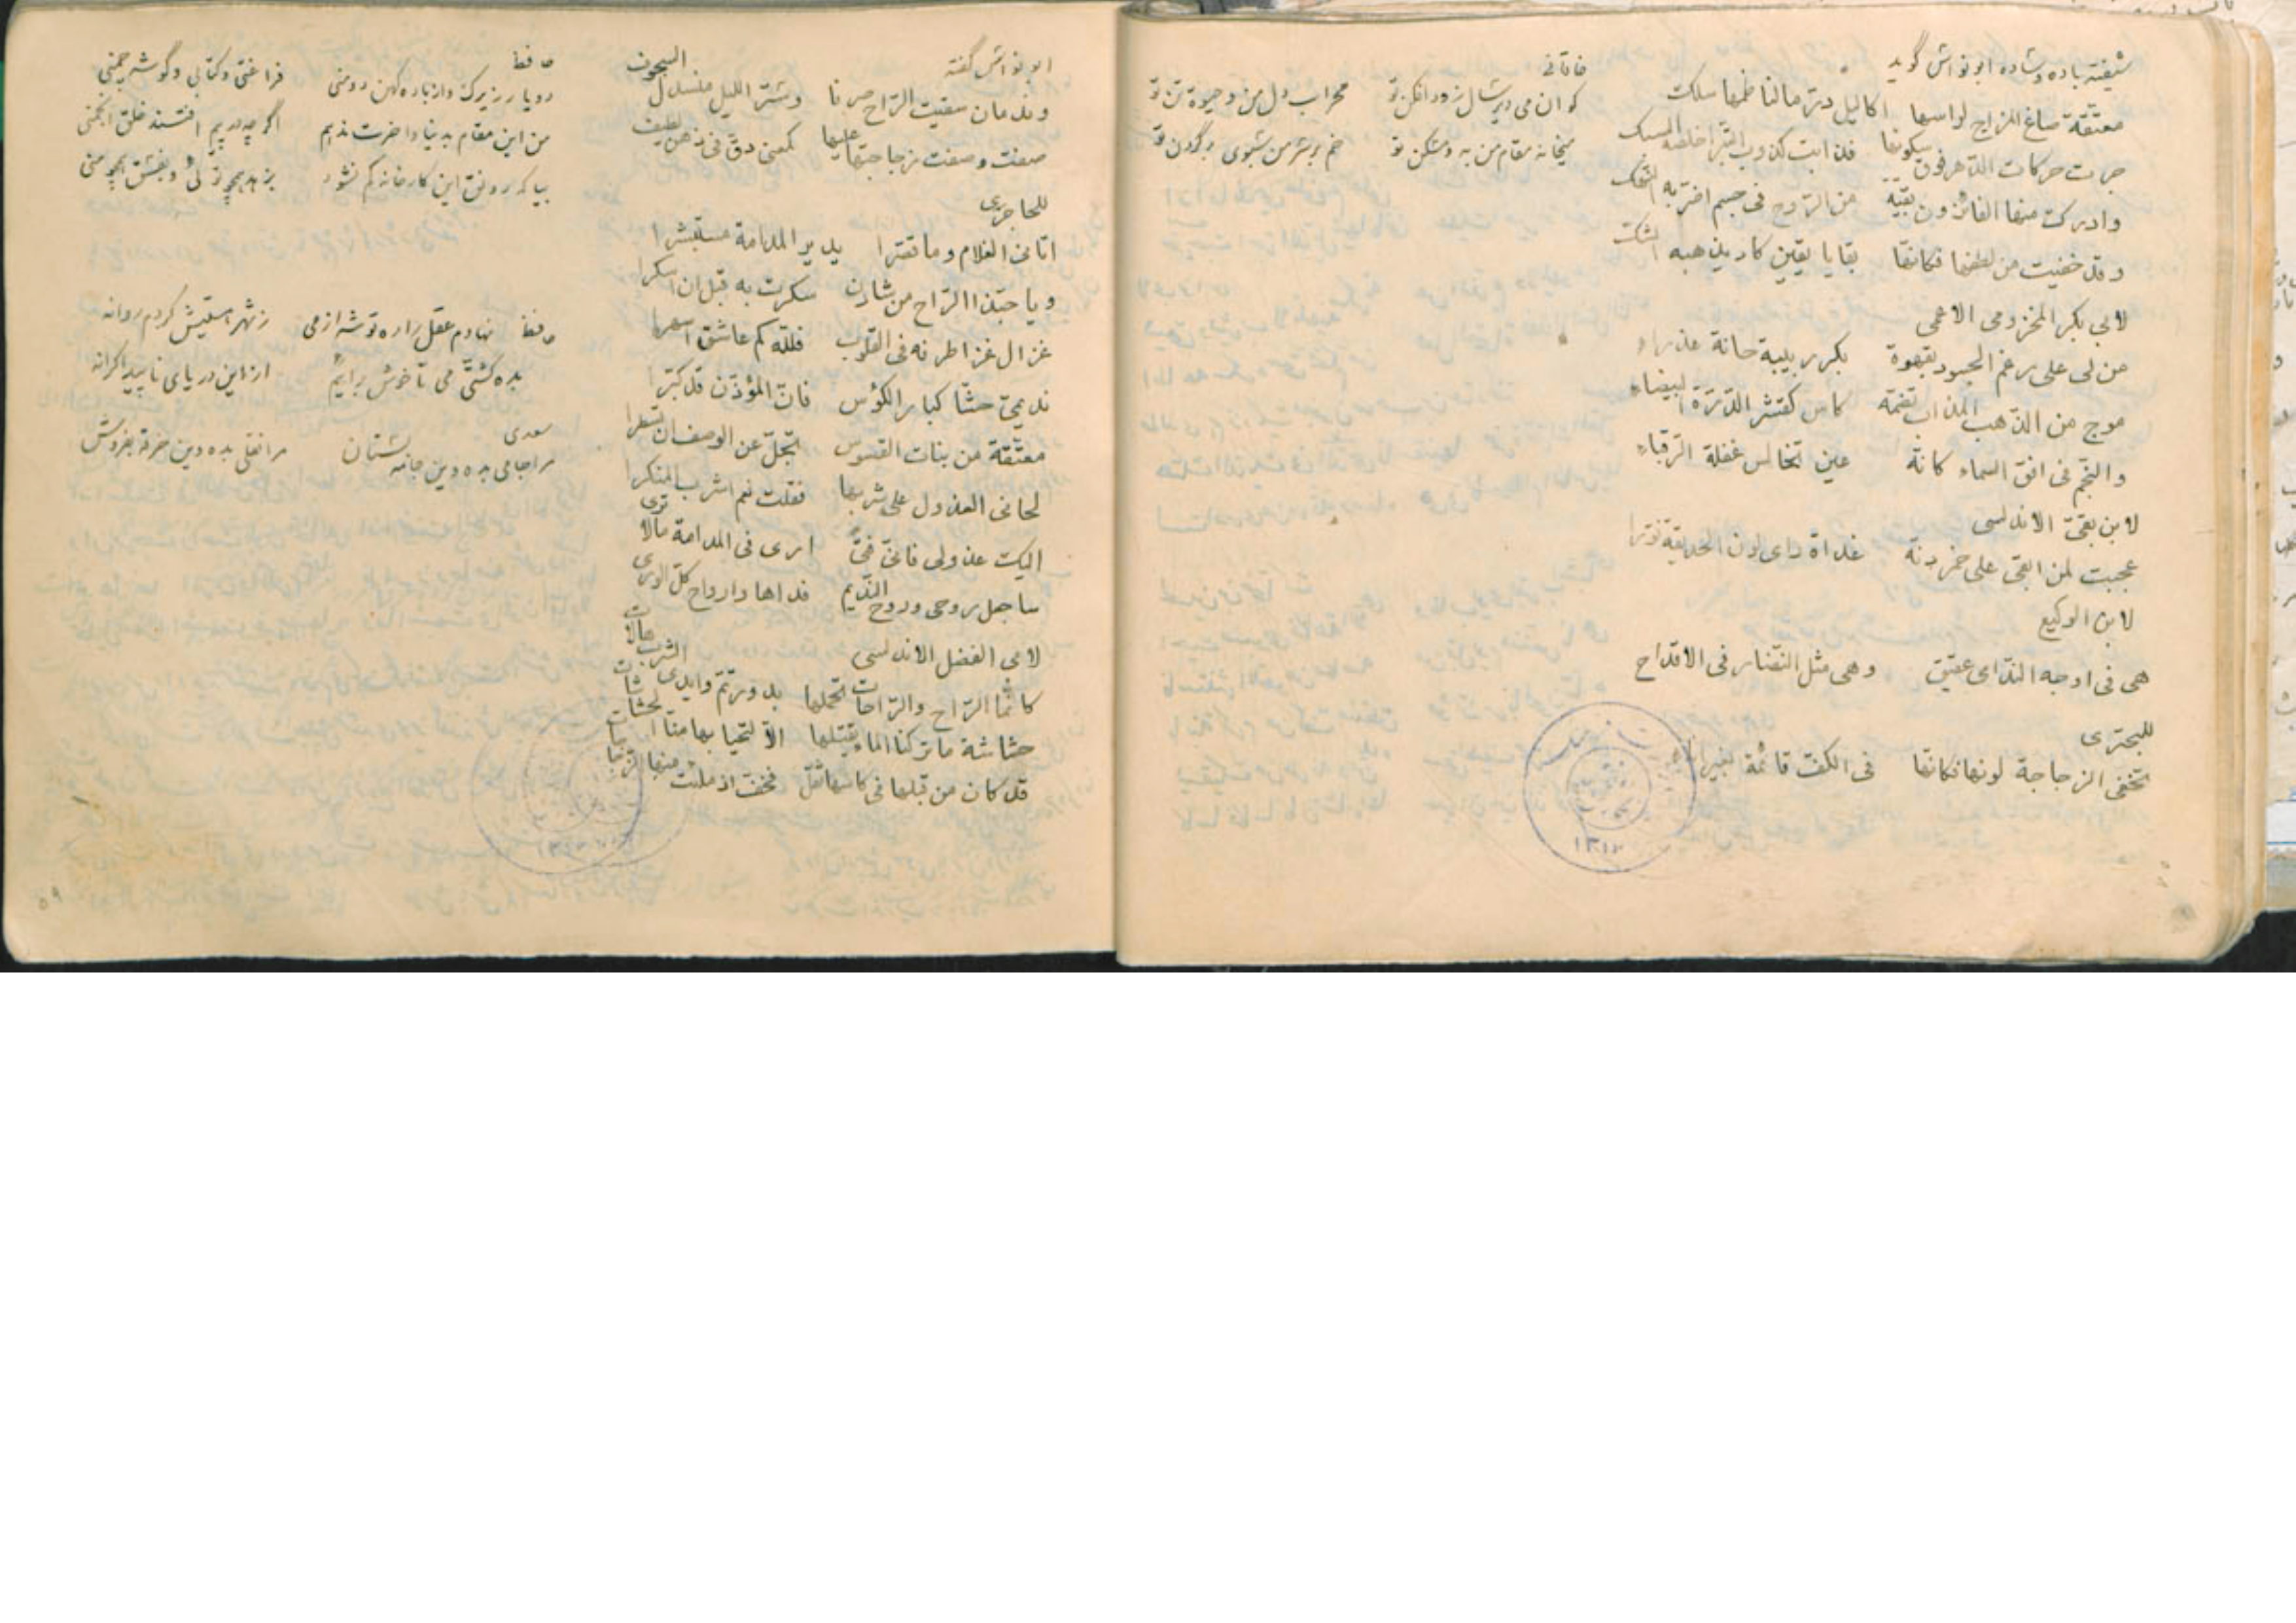 شیفته باده و شاده ابو نواش گوید
معتّقة صاغ المزاج لراسها اكاليل درّ ما لناظمها سلك
جرت حركات الدّهر فوق سكونها فذابت كذوب التّبر اخلصه السبك
وادركت منها الفانون بقيّة من الرّوح في جسم اضرّ به النّهك
وقد خفيت من لطفها فكانها بقايا يقين كاد يذهبه الشكّ
لابي بكر المخزومى الاعمى
من لى على رغم الحسود بقهوة بكر ربيبة حانة عذراء
موج من الذّهب المذاب تضمّه كاس كقشر الدّرّة البيضاء
والنّجم فى افق السماء كانّه عين تخالس غفلة الرّقباء
لابن بقىّ الاندلسى
عجبت لمن ابقى على خمر دنّه غداة راى لون الحديقة نوّرا
لابن الوكيع
هى فى اوجه النّدامى عقيق وهى مثل النّضار فى الاقداح
للبحترى
تخفى الزجاجة لونها فكانها فى الكفّ قائمة بغير اناء
خاقانى
كو ان مى دیرسال زودافکن تو محراب دل من و حیوة تن تو
میخانه مقام من به و مسکن تو خم بر سر من سبوی بر گردن تو
۱۳۱۲
ابو نواش گفته
وندمان سقيت الرّاح صرفا وستر الليل منسدل السجوف
صفت وصفت زجاجتها عليها كمعنى دقّ فى ذهن لطيف
للحاجرى
اتانى الغلام وما قصّرا يدير المدامة مستبشرا
ويا حبّذا الرّاح من شادن سكرت به قبل ان اسكرا
غزال غزا طرفه فى القلوب فللّه كم عاشق اسهرا
نديمىّ حثّا كبار الكؤس فانّ المؤذّن قد كبّرا
معتّقة من بنات القسوس تجلّ عن الوصف ان تسطرا
لحانى العذول على شربها فقلت نعم اشرب المنكرا
اليك عذولى فانى فتىً ارى فى المدامة ما لا ترى
ساجعل روحى وروح النّديم فداها وارواح كلّ الورى
لابى الفضل الاندلسى
كانّما الرّاح والرّاحات تحملها بدور تمّ وايدى الشرب هالات
حشاشة ما تركنا الماء يقتلها الاّ لتحيا بها منّا حشاشات
قد كان من قبلها فى كاسها ثقل فخفّ اذ ملئت منها الزجاجات
حافظ
دو یار زیرک و از باده کهن دو منی فراغتی و کتابی و گوشه چمنی
من این مقام بدنیا و اخرت ندهم اگرچه در پیم افتند خلق انجمنی
بیا که رونق این کارخانه کم نشود بزهد همچو توئی و بفسق همچو منی
حافظ نهادم عقل را ره توشه از می ز شهر هستیش کردم روانه
بده کشتی می تا خوش برایم از این دریای ناپیدا کرانه
سعدی
مرا جامی بده وین جامه بستان مرا نقلی بده وین خرقه بفروش
۵۹